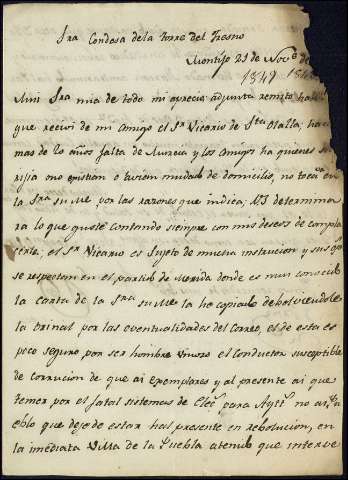 Sra Condesa de la torre del Fresno
Montijo 21 de Novᵉ de
1847 184
Mui Sra mia de todo mi aprecio: adjunta remito
que recivi de mi amigo el Sʳ Vicario de Sᵗᵃ Olalla; hace
mas de 20 años falta de Murcia y los amigos ha quienes se
ó existian ó avian mudado de domicilio, no
Sra su Mᵉ por las razones que indica; V.S determina
ra lo que guste contando siempre con mis deseos de compla
cerla, el Sʳ Vicario es sujeto de mucha instrucion y sus
se respectan en el partido de Merida donde es mui conocido
la carta de la Sra su Mᵉ la he copiado debolviendole
la orinal por las eventualidades del Correo, el de esta es
poco seguro por ser hombre el conductor susceptible
de corrucion de que ai exemplares y al presente ai que
temer por el fatal sistemas de Elecⁿ para Ayttᵒ no ai
eblo que deje de estar hal presente en rebolucion, en
la imediata Villa de la Puebla